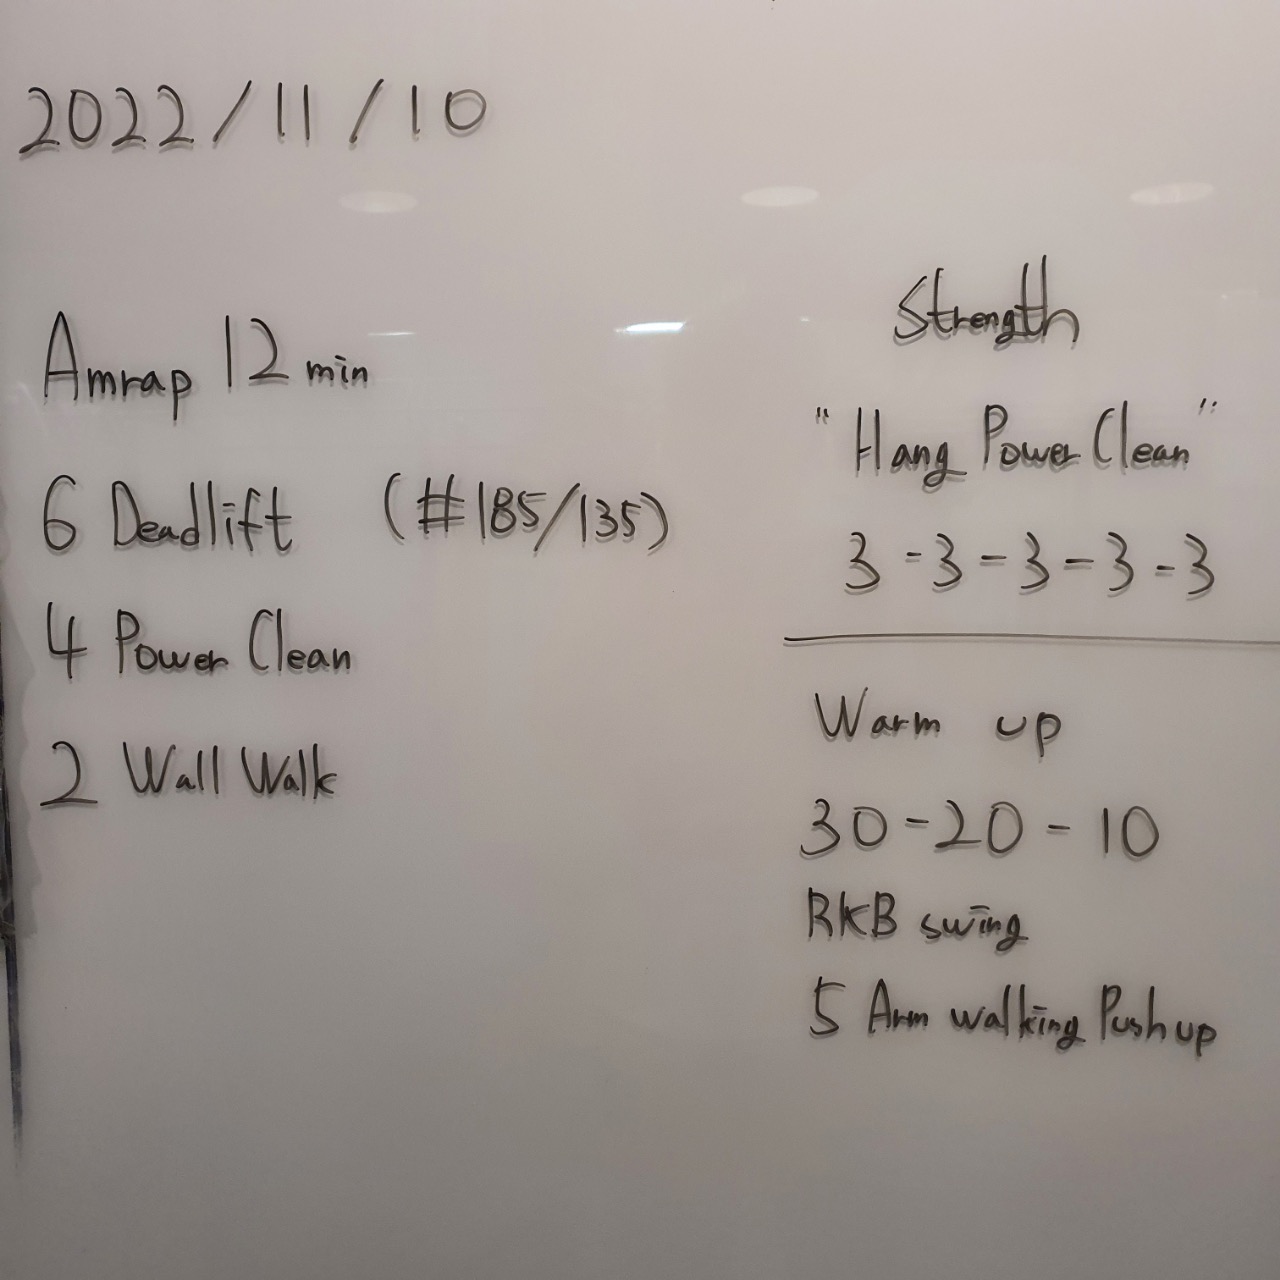 2022/11/10
Amrap 12 min
6 Deadlift (#185/135)
4 Power Clean
2 Wall Walk
Strength
"Hang Power Clean"
3-3-3-3-3
Warm up
30-20-10
RKB swing
5 Arm walking Push up